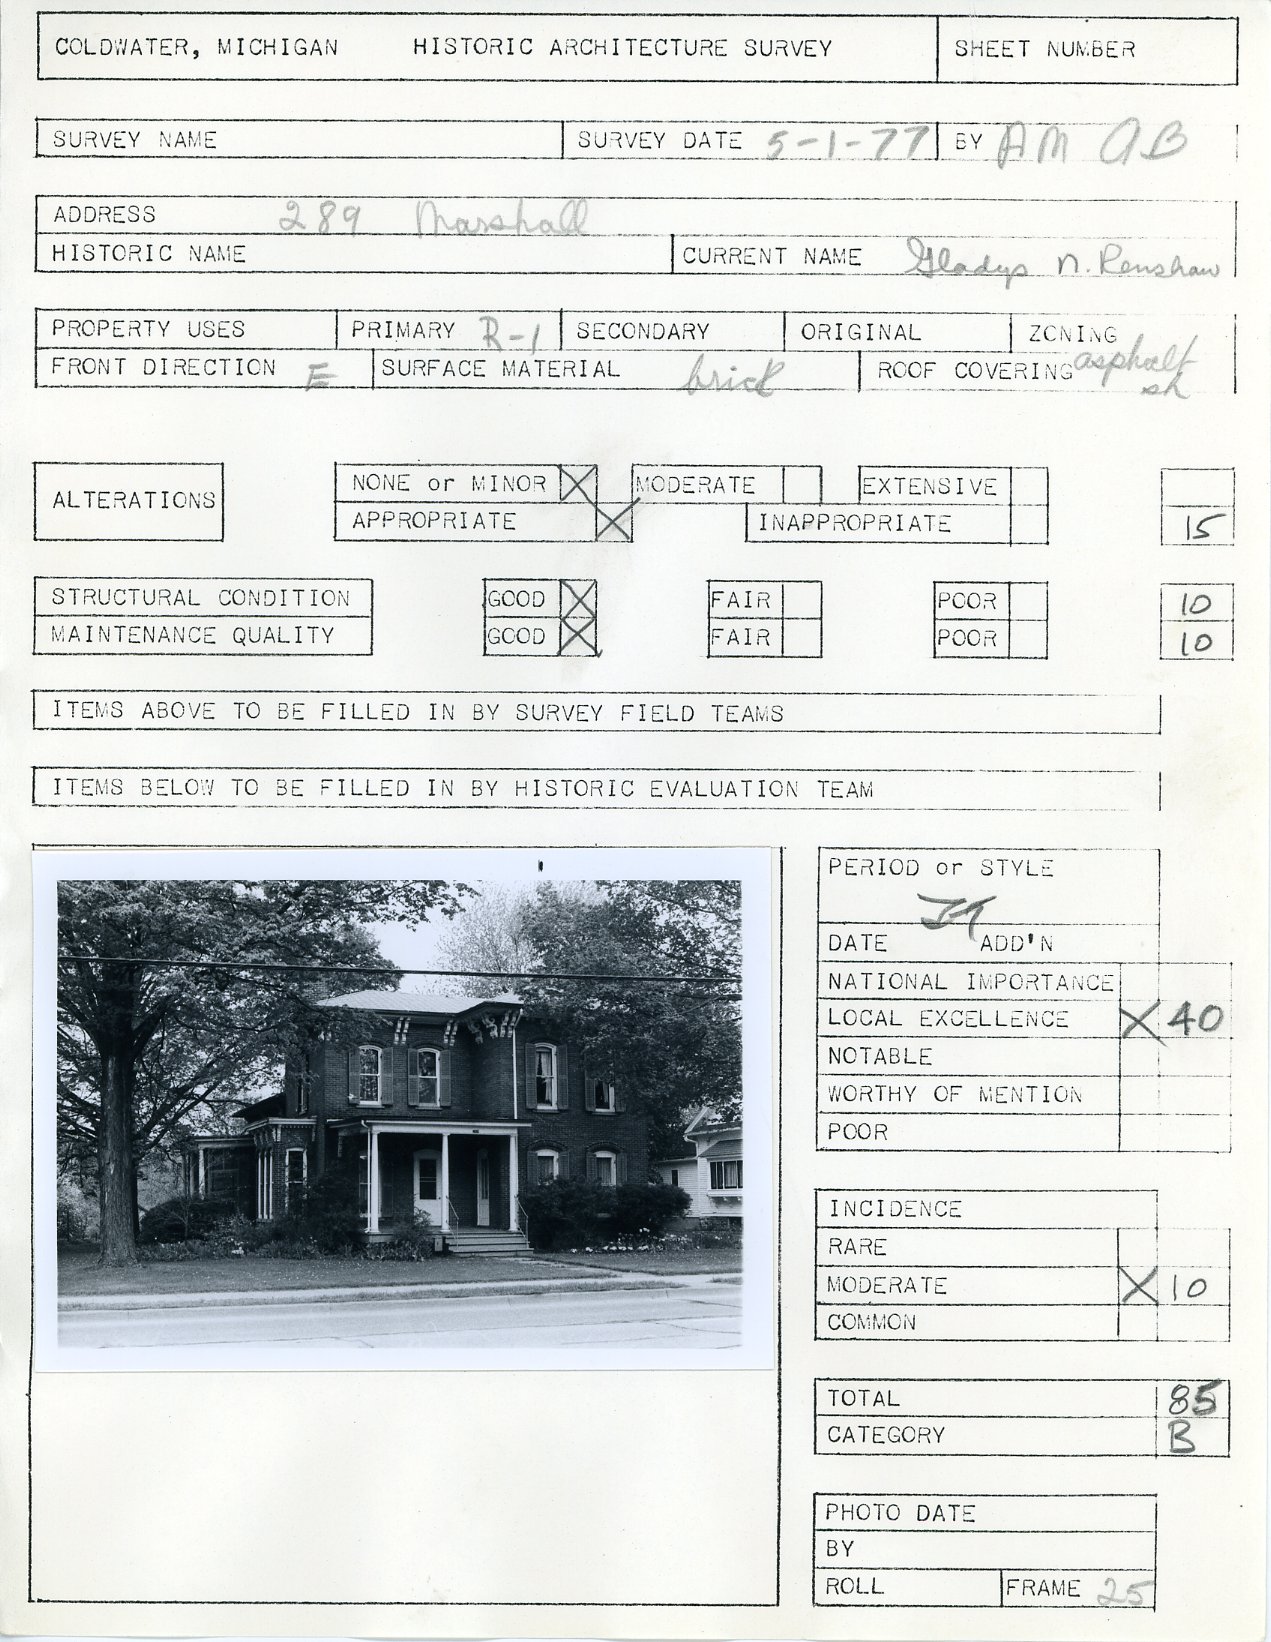 COLDWATER, MICHIGAN HISTORIC ARCHITECTURE SURVEY SHEET NUMBER
SURVEY NAME SURVEY DATE 5-1-77 BY AM AB
ADDRESS 289 Marshall
HISTORIC NAME CURRENT NAME Gladys N. Renshaw
PROPERTY USES PRIMARY R-1 SECONDARY ORIGINAL ZONING
FRONT DIRECTION E SURFACE MATERIAL brick ROOF COVERING asphalt sh
ALTERATIONS NONE or MINOR X MODERATE EXTENSIVE
APPROPRIATE X INAPPROPRIATE 15
STRUCTURAL CONDITION GOOD X FAIR POOR 10
MAINTENANCE QUALITY GOOD X FAIR POOR 10
ITEMS ABOVE TO BE FILLED IN BY SURVEY FIELD TEAMS
ITEMS BELOW TO BE FILLED IN BY HISTORIC EVALUATION TEAM
PERIOD or STYLE
It
DATE ADD'N
NATIONAL IMPORTANCE
LOCAL EXCELLENCE X 40
NOTABLE
WORTHY OF MENTION
POOR
INCIDENCE
RARE
MODERATE X 10
COMMON
TOTAL 85
CATEGORY B
PHOTO DATE
BY
ROLL FRAME 25